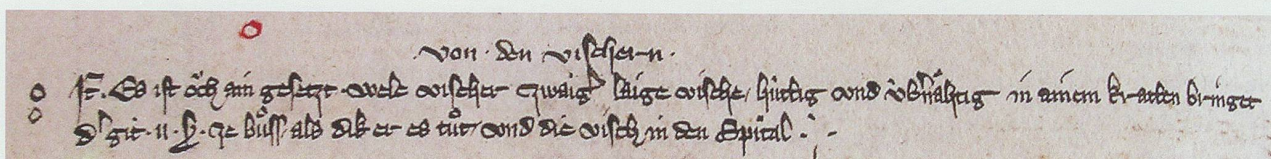 von · den vischern ·
Es ist o̊ch ain gesetzt · wele vischer zwaiger laige vische / hùttig vnd ùbernåhtig in ainem kratten bringet
der git · ij · ß · ze bůss / als dik er es tůt / vnd die visch in den Spital ·